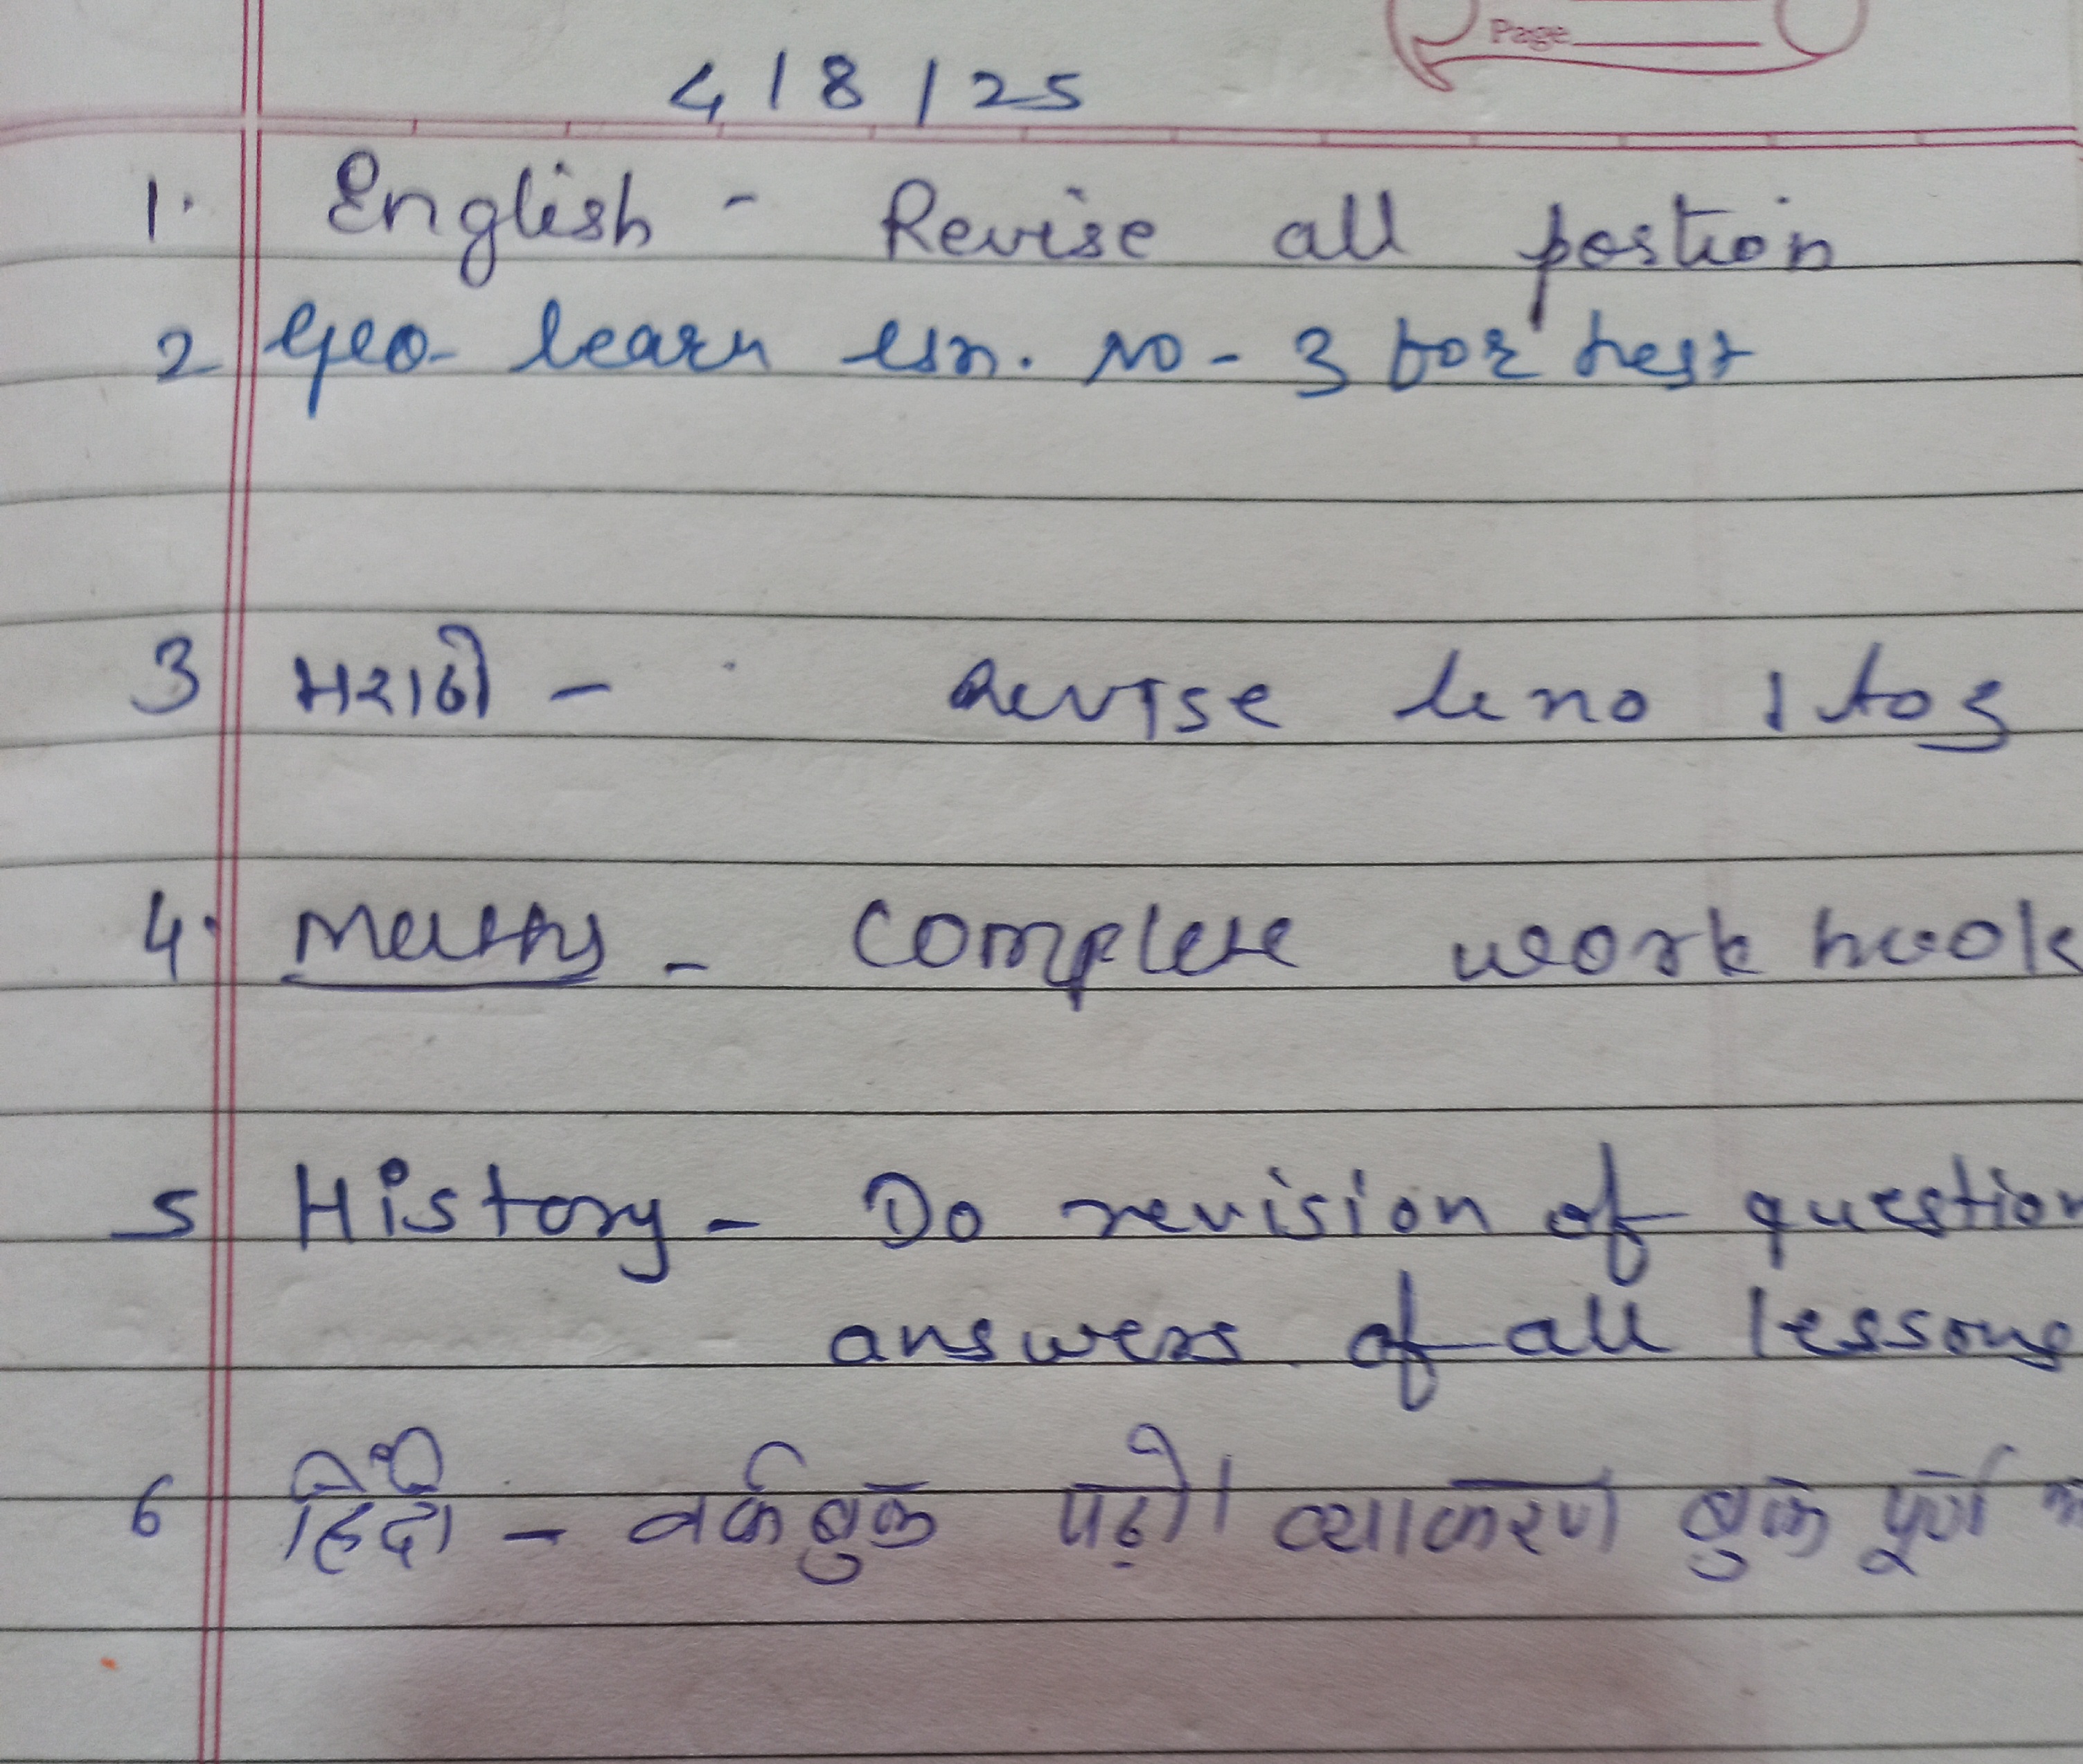 Page
4/8/25
1. English - Revise all portion
2 Geo- learn lsn. NO - 3 for test
3 मराठी - Revise le no 1 to 3
4. Maths - complete work book
5 History - Do revision of question
answers of all lessons
6 हिंदी - वर्कबुक पढ़ो। व्याकरण बुक पूर्ण